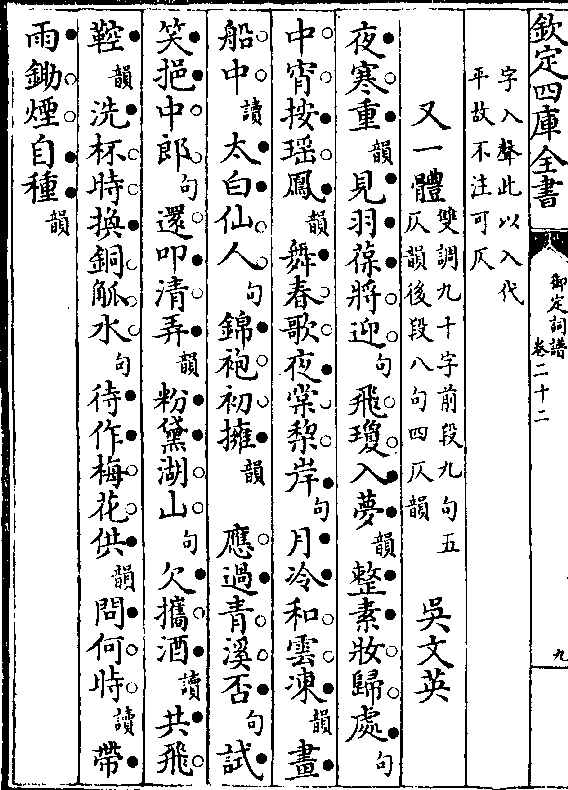 欽定四庫全書
御定詞譜
卷二十二
九
字入聲此以入代
平故不注可仄
又一體
雙調九十字前段九句五
仄韻後段八句四仄韻
吳文英
夜寒重韻見羽葆將迎句飛瓊入夢韻整素妝歸處句
中宵按瑶鳳韻舞春歌夜棠梨岸句月冷和雲凍韻畫
船中讀太白仙人句錦袍初擁韻應過青溪否句試
笑挹中郎句還叩清弄韻粉黛湖山句欠攜酒讀共飛
鞚韻洗杯時換銅觚水句待作梅花供韻問何時讀帶
雨鋤煙自種韻